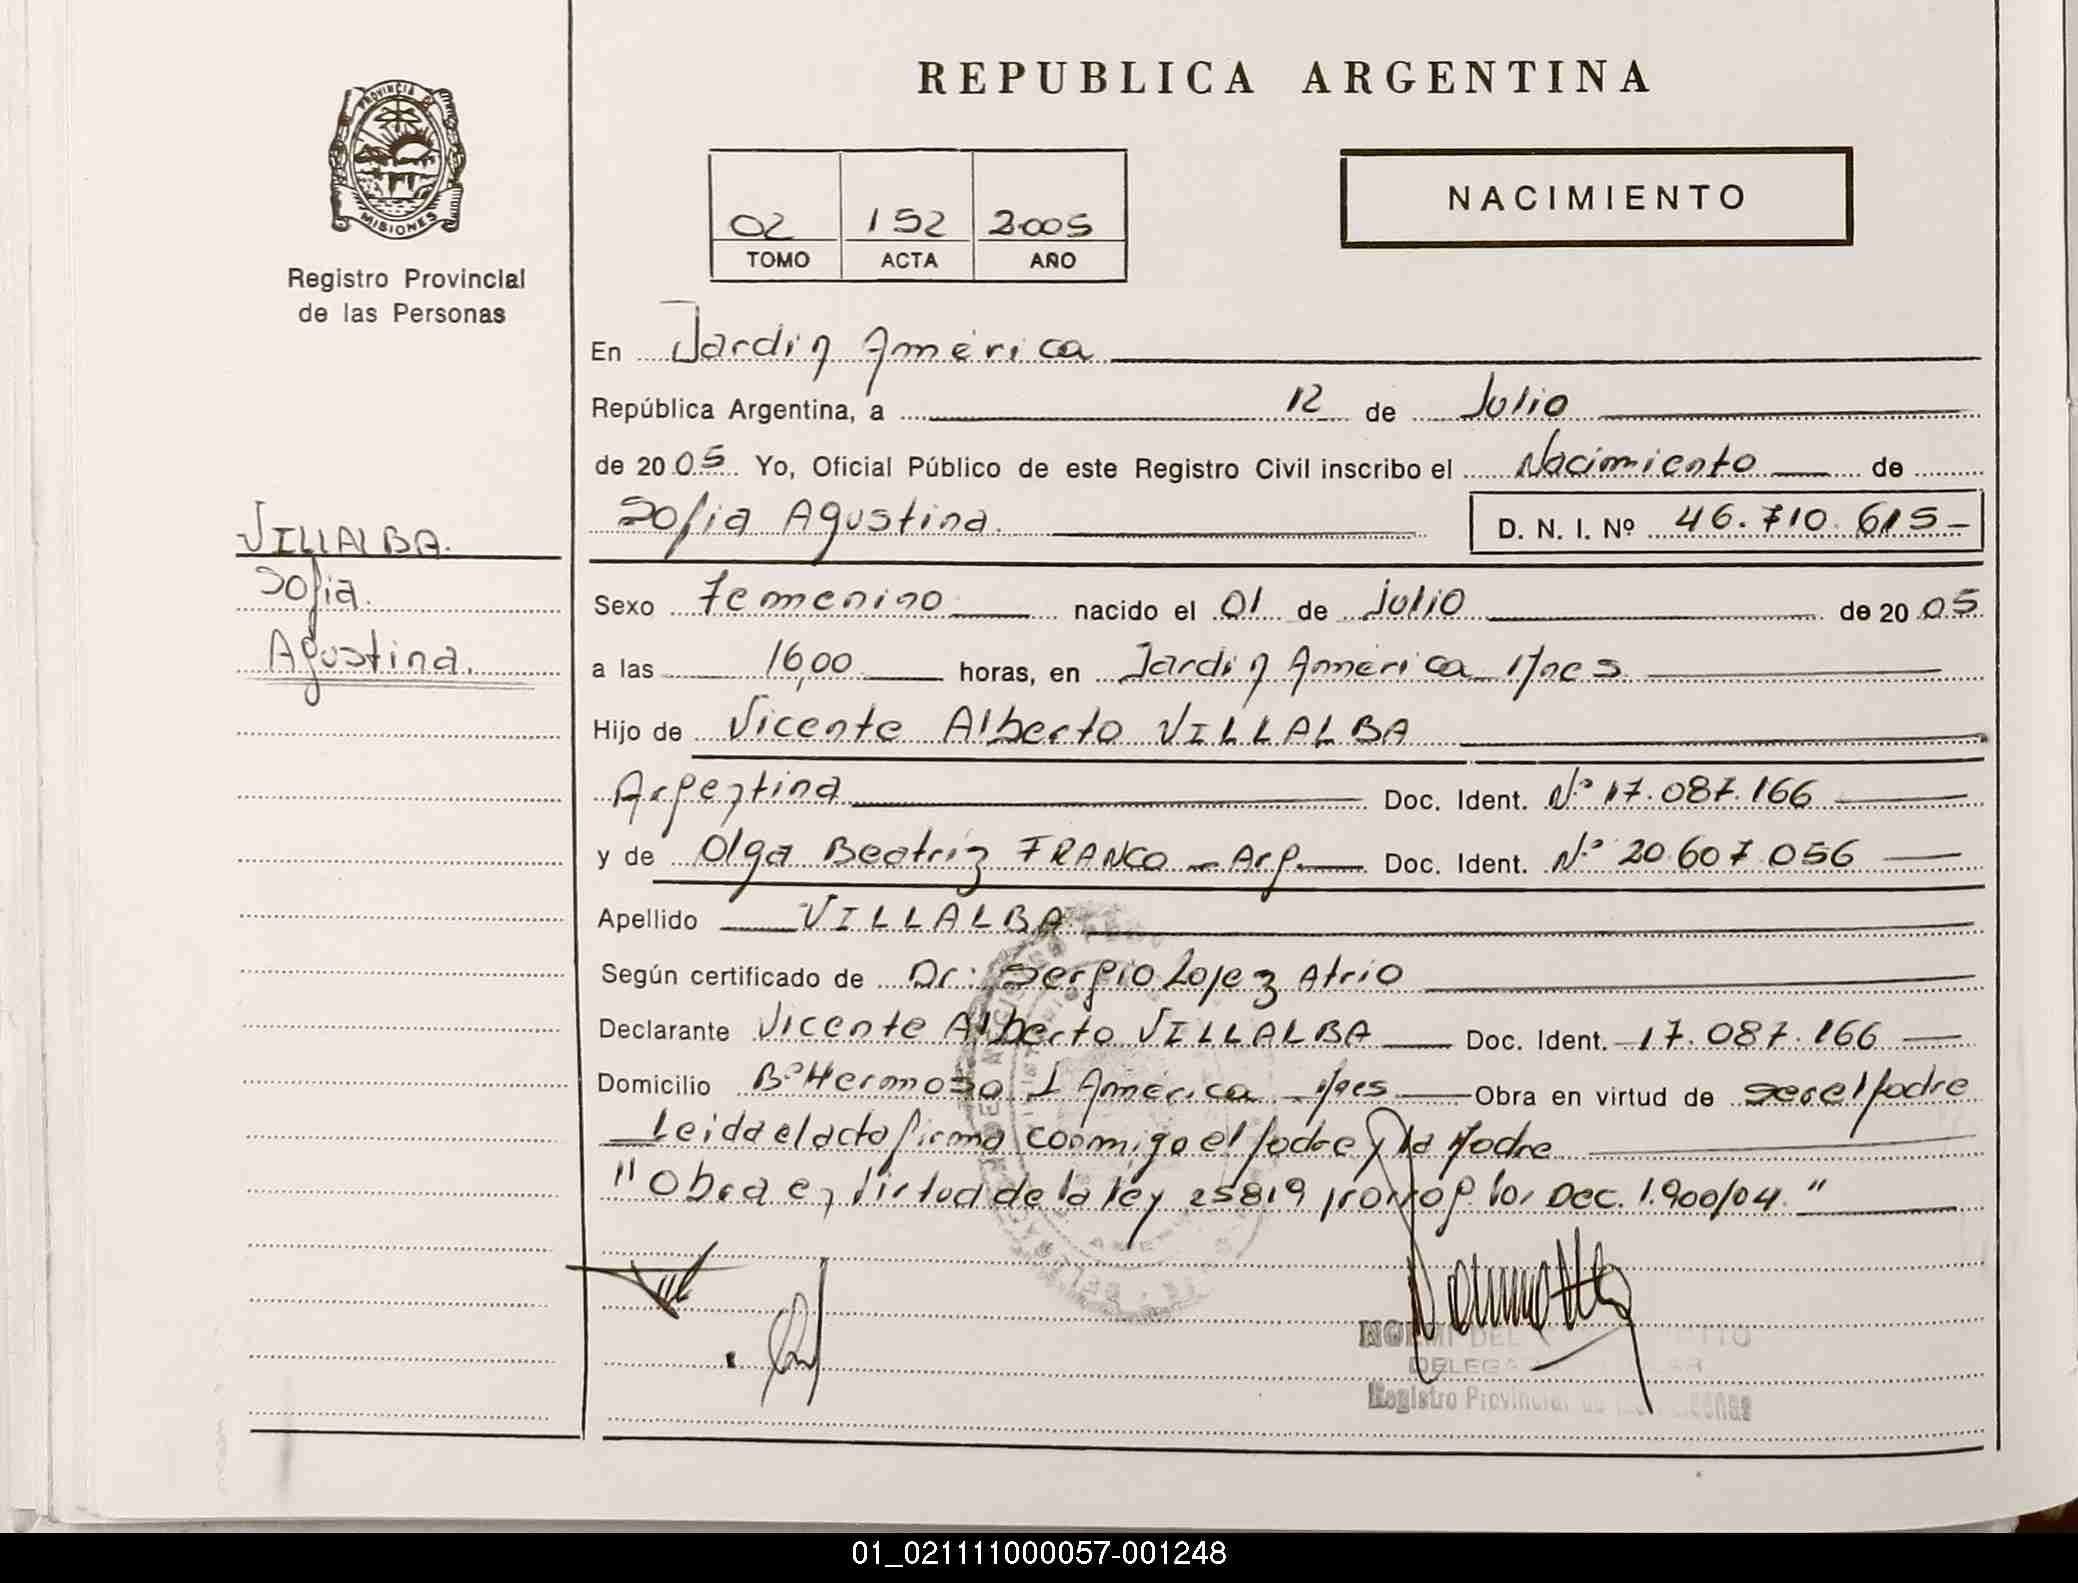 REPUBLICA ARGENTINA
PROVINCIA DE
MISIONES
Registro Provincial
de las Personas
NACIMIENTO
02 152 2005
TOMO ACTA AÑO
En Jardin América
República Argentina, a 12 de Julio
de 2005 Yo, Oficial Público de este Registro Civil inscribo el Nacimiento de
Sofia Agustina. D. N. I. Nº 46.710.615-
VILLALBA.
Sofia.
Agustina.
Sexo Femenino nacido el 01 de Julio de 2005
a las 16,00 horas, en Jardin América Mnes
Hijo de Vicente Alberto VILLALBA
Argentina Doc. Ident. Nº 17.087.166
y de Olga Beatriz FRANCO - Arg. Doc. Ident. Nº 20.607.056
Apellido VILLALBA
Según certificado de Dr: Sergio Lopez Atrio
Declarante Vicente Alberto VILLALBA Doc. Ident. 17.087.166
Domicilio Bº Hermoso J América Mnes Obra en virtud de ser el padre
Leida el acta firma conmigo el padre y la Madre
"Obra en virtud de la ley 25819 prorrog. por Dec. 1.900/04."
DELEGA
Registro Provincial
01_021111000057-001248